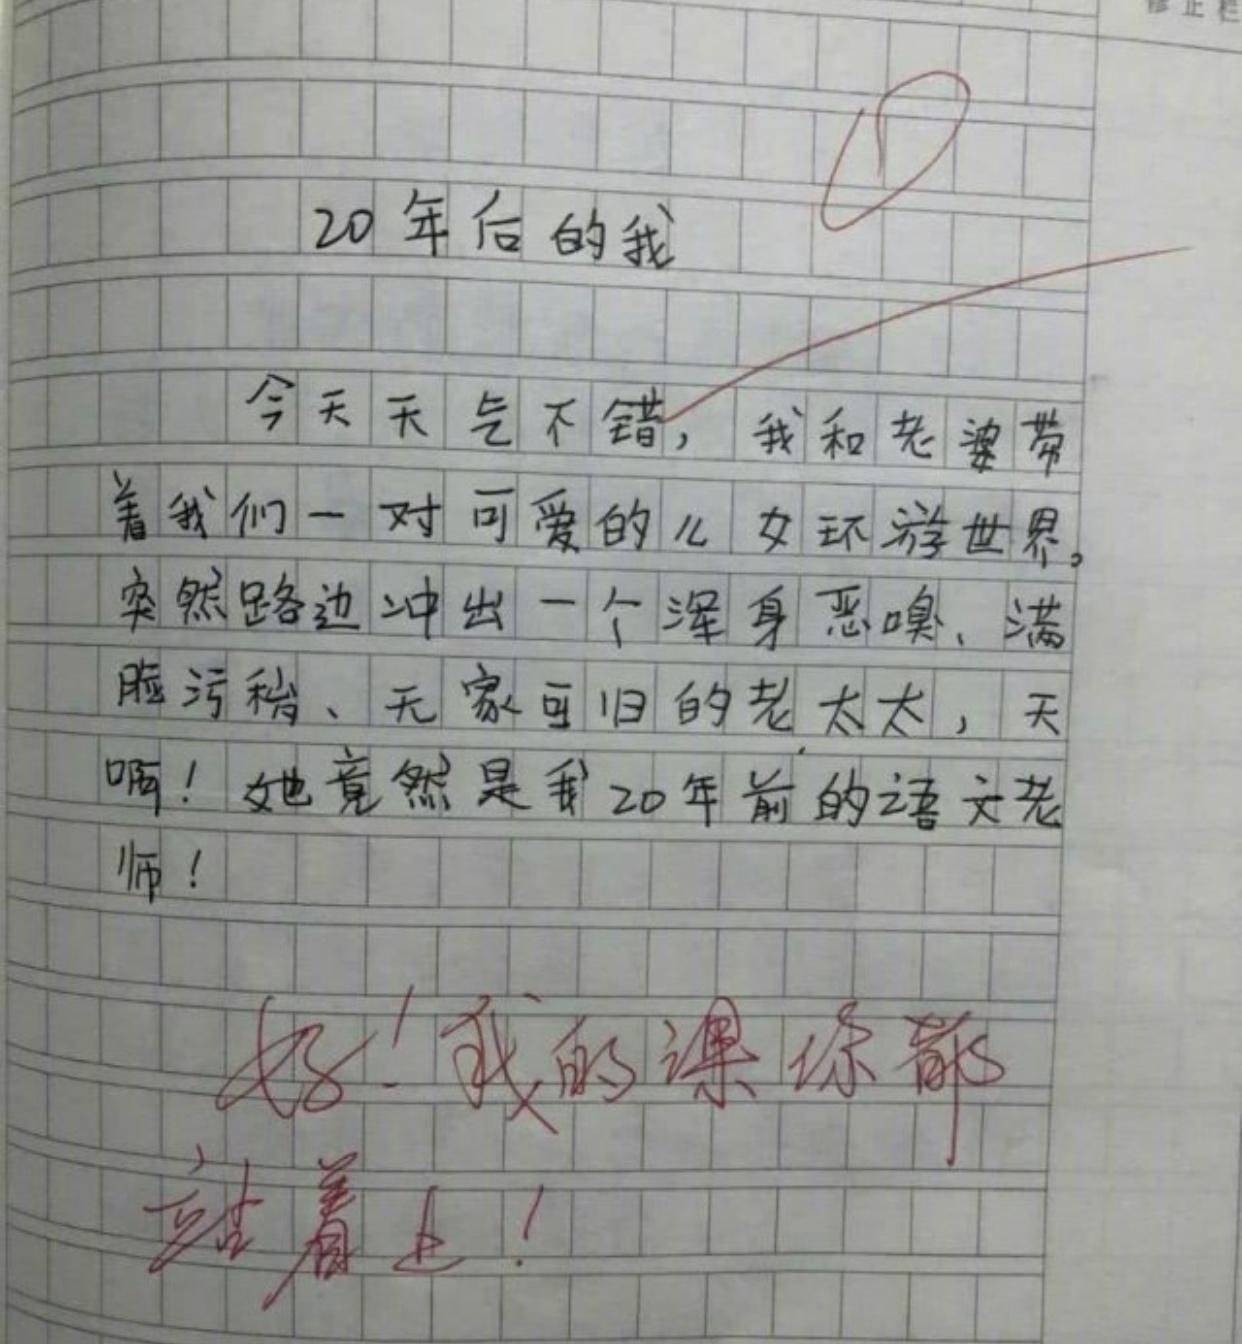 修正栏
20年后的我
今天天气不错，我和老婆带
着我们一对可爱的儿女环游世界。
突然路边冲出一个浑身恶嗅、满
脸污秽、无家可归的老太太，天
啊！她竟然是我20年前的语文老
师！
好！我的课你都
站着上！